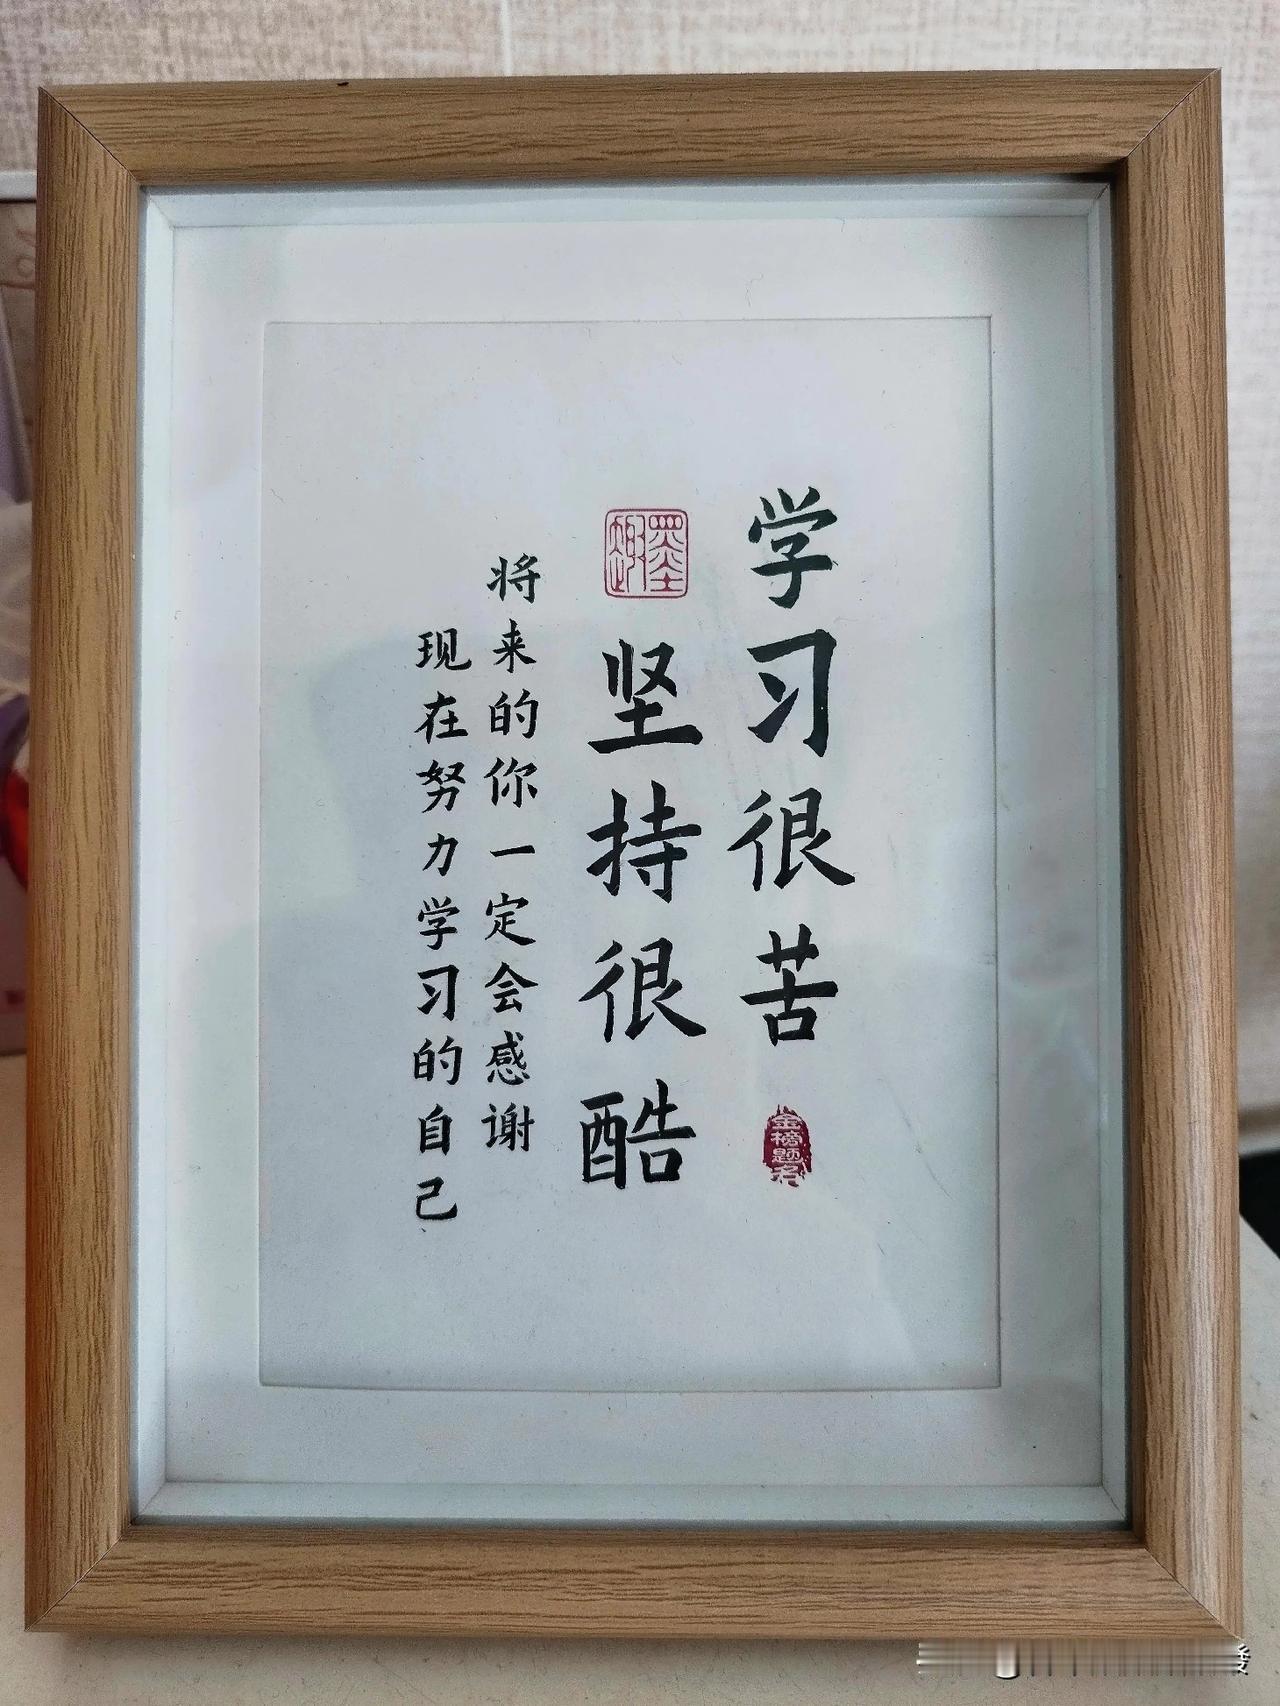 学习很苦
金榜题名
墨趣
坚持很酷
将来的你一定会感谢
现在努力学习的自己